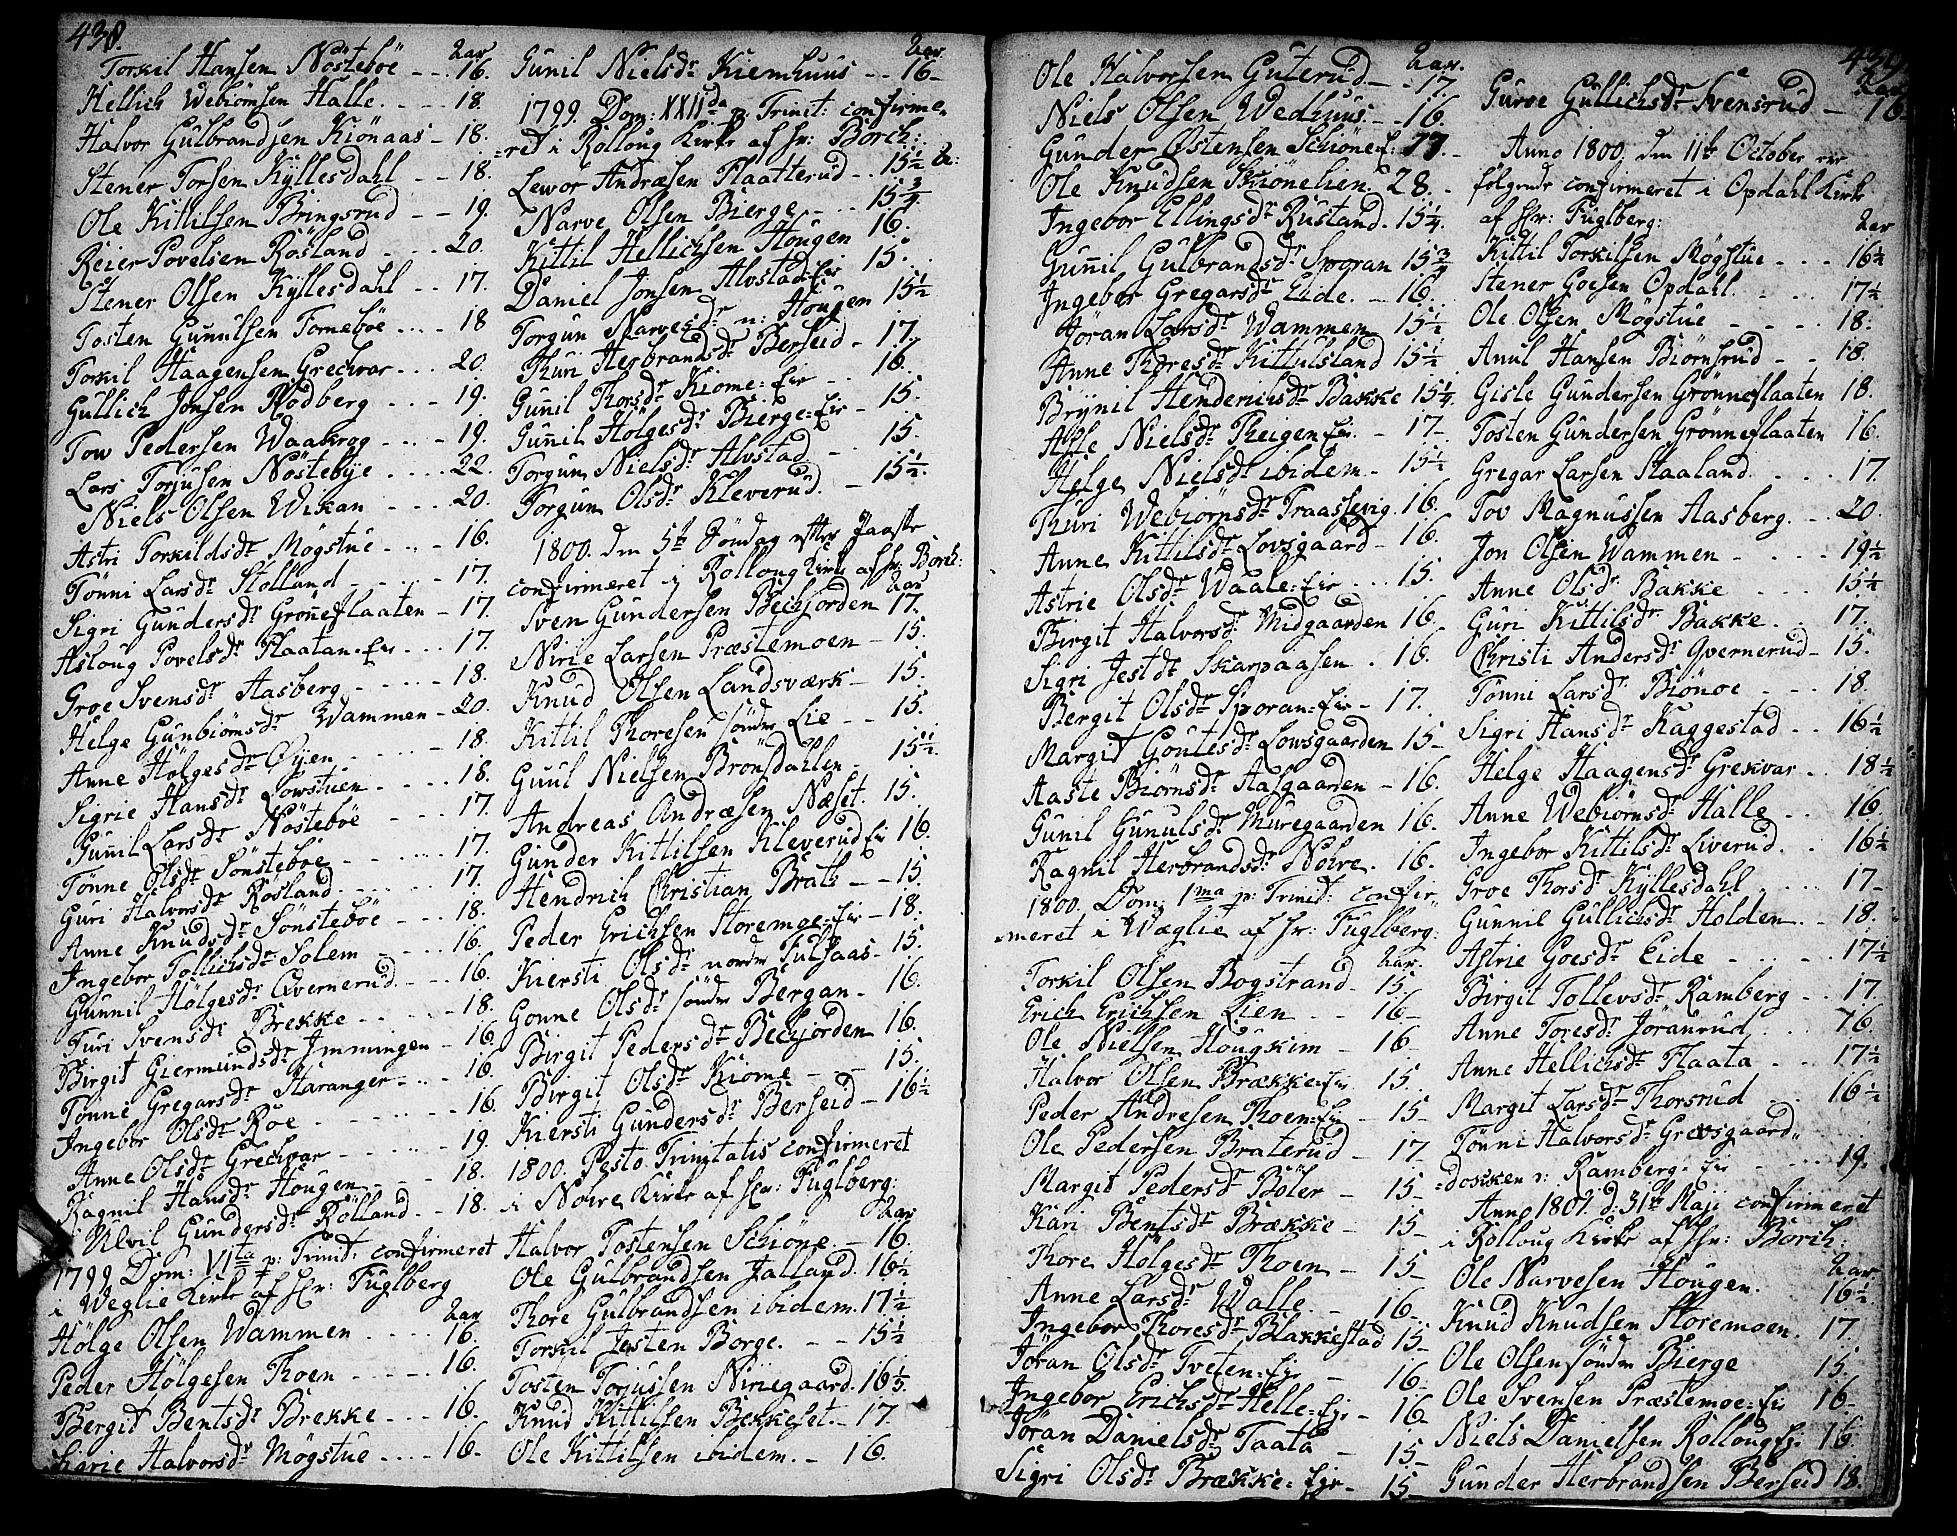 438.
Aar
Torkil Hansen Nösteböe - - 16.
Hellich Webiörnsen Halle. - - - 18.
Halvor Gulbrandsen Kiönaas - 18.
Stener Torsen Kyllesdahl - - 18.
Ole Kittilsen Bringsrud - - 19.
Reier Povelsen Rösland - - - 20.
Stener Olsen Kyllesdahl - - 17.
Tosten Gunulsen Forneböe - - - 18
Torkil Haagensen Grechvar - - - 20.
Gullich Jonsen Rödberg - - - 19.
Tow Pedersen Waakrog - - - - 19.
Lars Torjusen Nöstebye - - - - 22.
Niels Olsen Wikan - - - 20.
Astri Torkildsdr Mögstue - - - 16.
Tönni Larsdr Stolland - - - - 17.
Sigri Gundersdr Gröneflaaten - 17.
Asloug Povelsdr Flaatan=Eie - - - 17.
Groe Svensdr Aasberg - - - - 18.
Helge Gunbiörnsdr Wammen - 20.
Anne Hölgesdr Øyen - - - - - 18.
Sigrie Hansdr Lowstuen - - - - 18.
Gunil Larsdr Nösteböe - - - 17.
Tönne Olsdr Sönsteböe - - - - 17.
Guri Halvorsdr Rosland - - - - 17.
Anne Knudsdr Sönsteböe - - - 18.
Ingebor Tollichsdr Solem - - - 16.
Gunnil Hölgesdr Qvernerud - - - 16.
Turi Svensdr Brekke - - - - - 18.
Birgit Giermundsdr Immingen - 16.
Tönne Gregarsdr Haranger - - - 16.
Ingebor Olsdr Roe - - - - - - 16.
Anne Olsdr Grechvar - - - - - 19.
Ragnil Hansdr Hougen - - - - 18.
Ulvil Gundersdr Rölland - - 18.
1799 Dom: VIta p: Trinit: confirmeret
i Weglie Kirke af Hr: Fuglberg
Aar
Hölge Olsen Wammen - - - - 16.
Peder Hölgesen Thoen - - - - - 16.
Bergit Bentsdr Brekke - - - 16.
Sigrie Halvorsdr Mögstue - - - - 16.
Aar
Gunil Nielsdr Kiemhuus - - 16
1799. Dom: XXIIda p: Trinit: confirme,
=ret i Rolloug Kirke af Hr: Borch:
Lewor Andræsen Flaatterud - - 15½ A:
Narve Olsen Bierge - - - 15¾.
Kittil Hellichsen Hougen 16.
Daniel Jonsen Alvstad=Eie 15.
Torgun Narvesdr n: Hougen 15½
Thuri Herbrandsdr Berseid - 17.
Gunil Thorsdr Kiome=Eie - - 16.
Gunil Hölgesdr Bierge=Eie - 15.
Torgun Nielsdr Alvstad - - 15.
Torgun Olsdr Kleverud. - 15½.
1800. den 5te Söndag efter Paaske
confirmeret i Rolloug Kirke af Hr: Borch:
Aar
Sven Gundersen Bechjorden 17.
Nirie Larsen Præstemoen - 15.
Knud Olsen Landsværk - 15.
Kittil Thoresen söndre Lie - - 15.
Guul Nielsen Brönsdahlen - 15½.
Andreas Andræsen Næset. 15.
Gunder Kittilsen Kleverud Eie 16.
Hendrich Christian Bratz - - 15.
Peder Erichsen Storemoe=Eie - 18.
Kiersti Olsdr nordre Fulsaas - 15.
Gonne Olsdr söndre Bergan - 16.
Birgit Pedersdr Bechjorden 16.
Birgit Olsdr Kiome - - - 15.
Kiersti Gundersdr Berseid - 16½
1800. Festo Trinitatis confirmeret
i Nohre Kirke af Hr: Fuglberg:
Aar
Halvor Tostensen Schiöne. - 16.
Ole Gulbrandsen Jalland. 16½
Thore Gulbrandsen ibidem. 17½
Torkil Tosten Borge. - - 15½
Tosten Torjussen Niriegaard. 16⅓.
Knud Kittilsen Bekkeset. - 17.
Ole Kittilsen ibidem. - 16.
439.
Aar.
Ole Halvorsen Guterud - - 17.
Niels Olsen Wedhuus. - - 16.
Gunder Østensen Schiöne=E: 17. -
Ole Knudsen Skiönelien. 28. -
Ingebor Ellingsdr Rustand. 15¼.
Gunil Gulbrandsdr Sporan 15¾
Ingebor Gregarsdr Eide. - 16.
Jöran Larsdr Wammen 15½
Anne Thoresdr Kittulsland 15½
Brynil Henderichsdr Bakke 15¼.
Aase Nielsdr Theigen Eie. - 17.
Helge Nielsdr ibidem. - 15½
Thuri Webiörnsdr Traaslevig. 16.
Anne Kittilsdr Lovsgaard - 16.
Astrie Olsdr Waale=Eie - - 15.
Birgit Halvorsdr Midgaarden 16.
Sigri Jestdr Skarpaasen. 16.
Bergit Olsdr Sporan=Eie - 17.
Margit Goutesdr Lowsgaarden 15 -
Aaste Biörnsdr Aasgaarden - 16.
Gunil Gunulsdr Muregaarden 16.
Ragnil Herbrandsdr Nohre. 16.
1800. Dom: 1ma p: Trinit: confir,,
=meret i Wæglie af Hr: Fuglberg:
Aar.
Torkil Olsen Bogstrand - 15.
Erich Erichsen Lien - - 16 -
Ole Nielsen Hougkim - 16
Halvor Olsen Brække=Eie 15.
Peder Andresen Thoen=Eie - 15 -
Ole Pedersen Braterud - 17.
Margit Pedersdr Böler - 15 -
Kari Bentsdr Brække - 15 -
Thore Hölgesdr Thoen - 15 -
Anne Larsdr Walle. - 16
Ingebor Thoresdr Blakkestad 15 -
Jöran Olsdr Tveten=Eie - 16.
Ingebor Erichsdr Helle=Eie - 16
Jöran Danielsdr Taata - 15 -
Sigri Olsdr Brække=Eie - 15 -
Aar
Guroe Gullichsdr Svensrud - 16
Anno 1800. den 11te October ere
følgende confirmeret i Opdahl Kirke
af Hr: Fuglberg:
Aar
Kittil Torkilsen Mögstue - - - 16½
Stener Goesen Opdahl. - - - 17½
Ole Olsen Mögstue - - - - 18.
Anul Hansen Biörnsrud - - 18.
Gisle Gundersen Grönneflaaten 18.
Tosten Gundersen Grönneflaaten 16.
Gregar Larsen Staaland. - - - 17.
Tov Magnussen Aasberg. - - 20.
Jon Olsen Wammen - - - - 19½
Anne Olsdr Bakke - - - 15½
Guri Kittilsdr Bakke - - 17.
Christi Andersdr Qvernerud - 15.
Tönni Larsdr Biönoe - - - 18.
Sigri Hansdr Kaggestad - - 16½
Helge Haagensdr Grekvar - - 18½
Anne Webiörnsdr Halle - - 16.
Ingebor Kittilsdr Liverud. - 16½
Groe Thorsdr Kyllesdahl - - - 17 -
Gunnil Gullichsdr Holden - - 18.
Astrie Goesdr Eide - - - - 17½
Birgit Tollevsdr Ramberg - - 17.
Anne Toresdr Jöranrud - - 16.
Anne Hellichsdr Flaata - - 17½
Margit Larsdr Thorsrud - - 16½
Tönni Halvorsdr Grevsgaard,,
=dokken v: Ramberg=Eie - - - 19.
Anno 1801. d: 31te Maji confirmeret
i Rolloug Kirke af Hr: Borch:
Aar
Ole Narvesen Hougen. 16½
Knud Knudsen Storemoen. 17.
Ole Olsen söndre Bierge 15.
Ole Svensen Præstemoe=Eie 16 -
Niels Danielsen Rolloug Eie 16.
Gunder Herbrandsen Berseid 18.